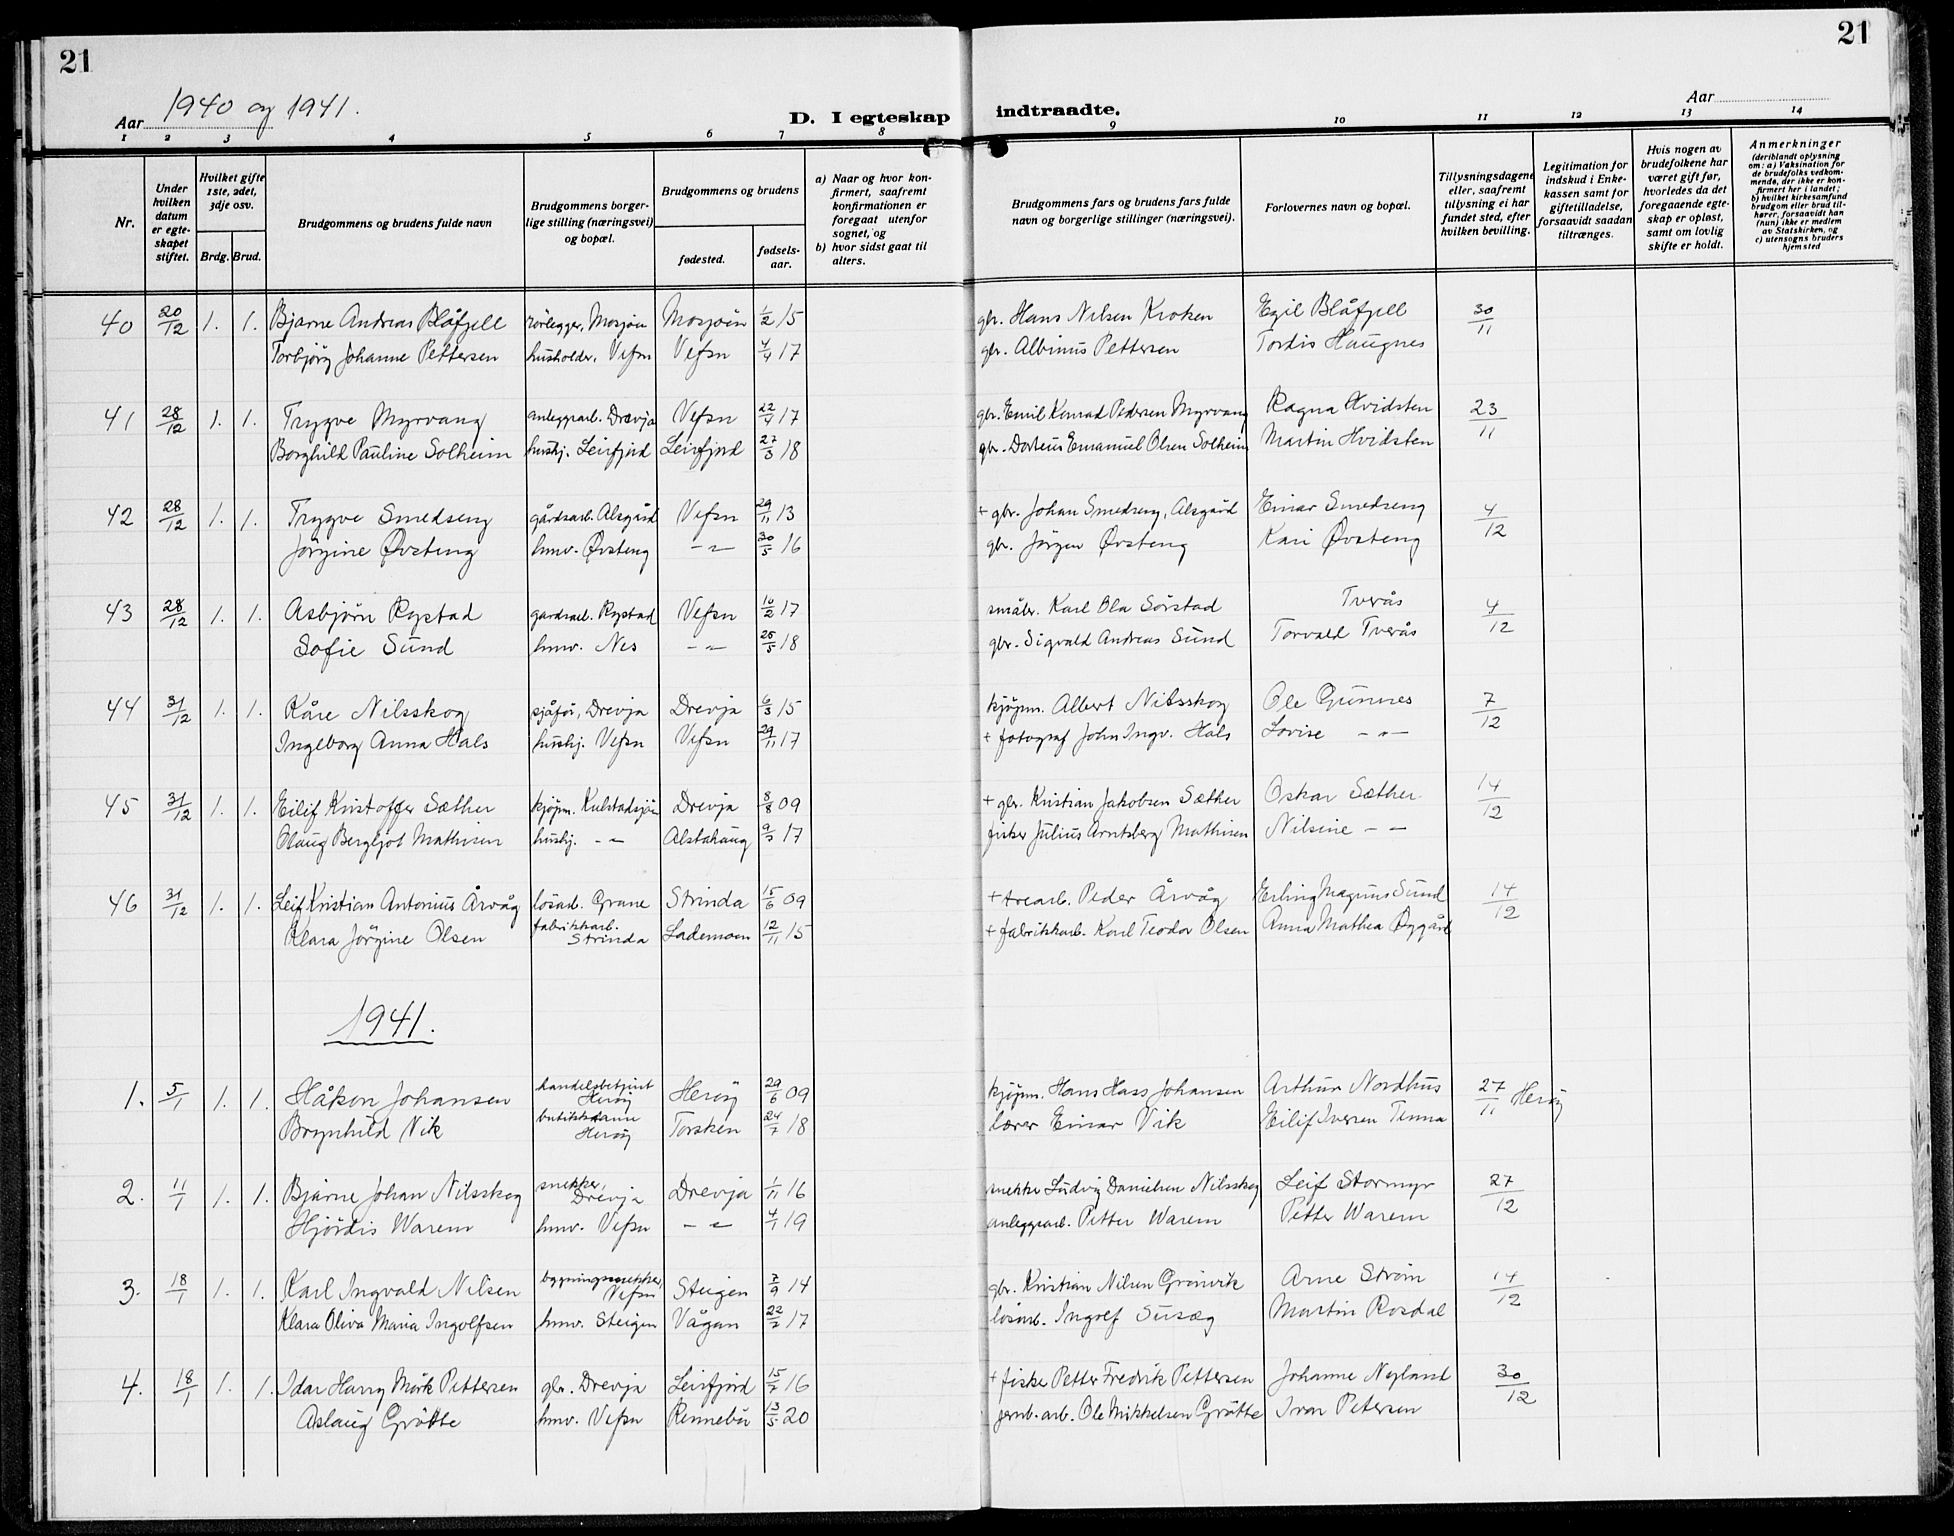 21
21
Aar 1940 og 1941.
D. I egteskap indtraadte.
Aar
1 2 3 4 5 6 7 8 9 10 11 12 13 14
Nr.
Under hvilken datum er egte-skapet stiftet.
Hvilket gifte 1ste, 2det, 3dje osv.
Brdg. Brud.
Brudgommens og brudens fulde navn
Brudgommens borger-lige stilling (næringsvei) og bopæl.
Brudgommens og brudens
fødested.
fødsels-aar.
a) Naar og hvor kon-firmert, saafremt konfirmationen er foregaat utenfor sognet, og
b) hvor sidst gaat til alters.
Brudgommens fars og brudens fars fulde navn og borgerlige stillinger (næringsvei).
Forlovernes navn og bopæl.
Tillysningsdagene eller, saafremt tillysning ei har fundet sted, efter hvilken bevilling.
Legitimation for indskud i Enke-kassen samt for giftetilladelse, forsaavidt saadan tiltrænges.
Hvis nogen av brudefolkene har været gift før, hvorledes da det foregaaende egte-skap er opløst, samt om lovlig skifte er holdt.
Anmerkninger (deriblandt oplysning om: a) Vaksination for de brudefolks vedkom-mende, der ikke er kon-firmert her i landet; b) hvilket kirkesamfund brudgom eller brud til-hører, forsaavidt han (hun) ikke er medlem av Statskirken, og c) utensogns bruders hjemsted
40 20/12 1. 1. Bjarne Andreas Blåfjell rørlegger, Mosjøen Mosjøen 1/2 15 gbr. Hans Nilsen Kroken Egil Blåfjell 30/11
Torbjørg Johanne Pettersen husholder, Vefsn Vefsn 4/4 17 gbr. Albinus Pettersen Tordis Haugnes
41 28/12 1. 1. Trygve Myrvang anleggsarb. Drevja Vefsn 22/4 17 gbr. Emil Konrad Pedersen Myrvang Ragna Hvidsten 23/11
Borghild Pauline Solheim hushj. Leirfjord Leirfjord 27/3 18 gbr. Dorteus Emanuel Olsen Solheim Martin Hvidsten
42 28/12 1. 1. Trygve Smedseng gårdsarb. Alsgård Vefsn 29/11 13 + gbr. Johan Smedseng, Alsgård Einar Smedseng 4/12
Jørgine Øvsteng hmv. Øvsteng -"- 30/5 16 gbr. Jørgen Øvsteng Kari Øvsteng
43 28/12 1. 1. Asbjørn Rystad gardsarb. Rystad Vefsn 10/2 17 småbr. Karl Ola Sørstad Tverås 4/12
Sofie Sund hmv. Nes -"- 25/5 18 gbr. Sigvald Andreas Sund Torvald Tverås
44 31/12 1. 1. Kåre Nilsskog sjåfør, Drevja Drevja 6/3 15 kjøpm. Albert Nilsskog Ole Gunnes 7/12
Ingeborg Anna Hals hushj. Vefsn Vefsn 29/11 17 + fotograf John Ingv. Hals Lovise -"-
45 31/12 1. 1. Eilif Kristoffer Sæther kjøpm. Kulstadsjøen Drevja 8/8 09 + gbr. Kristian Jakobsen Sæther Oskar Sæther 14/12
Olaug Bergljot Mathisen hushj. -"- Alstahaug 17 fisker Julius Arntsberg Mathisen Nilsine - -
46 31/12 1. 1. Leif Kristian Antonius Årvåg løsarb. Grane Strinda 15/6 09 + trearb. Peder Årvåg Erling Magnus Sund 14/12
Klara Jørgine Olsen fabrikkarb. Strinda Lademoen 12/11 15 + fabrikkarb. Karl Teodor Olsen Anna Mathea Øygård
1941.
1. 5/1 1. 1. Håkon Johansen handelsbetjent Herøy Herøy 29/6 09 kjøpm. Hans Hass Johansen Arthur Nordhus 27/11 Herøy
Brynhild Vik butikkdame Herøy Torsken 24/7 18 lærer Einar Vik Eilif Iversen Tenna
2. 11/1 1. 1. Bjarne Johan Nilsskog snekker, Drevja Drevja 1/11 16 snekke Ludvig Danielsen Nilsskog Leif Stormyr 27/12
Hjørdis Warem hmv. Vefsn -"- 4/1 19 anleggsarb. Petter Warem Petter Warem
3. 18/1 1. 1. Karl Ingvald Nilsen bygningssnekker, Vefsn Steigen 7/9 14 gbr. Kristian Nilsen Grønvik Arne Strøm 14/12
Klara Oliva Maria Ingolfsen hmv. Steigen Vågan 22/2 17 løsarb. Ingolf Susæg Martin Rosdal
4. 18/1 1. 1. Idar Harry Mørk Pettersen gbr. Drevja Leirfjord 15/7 16 + fisker Petter Fredrik Pettersen Johanne Nyland 30/12
Aslaug Grøtte hmv. Vefsn Rennebu 13/5 20 jernb. arb. Ole Mikkelsen Grøtte Ivar Petersen